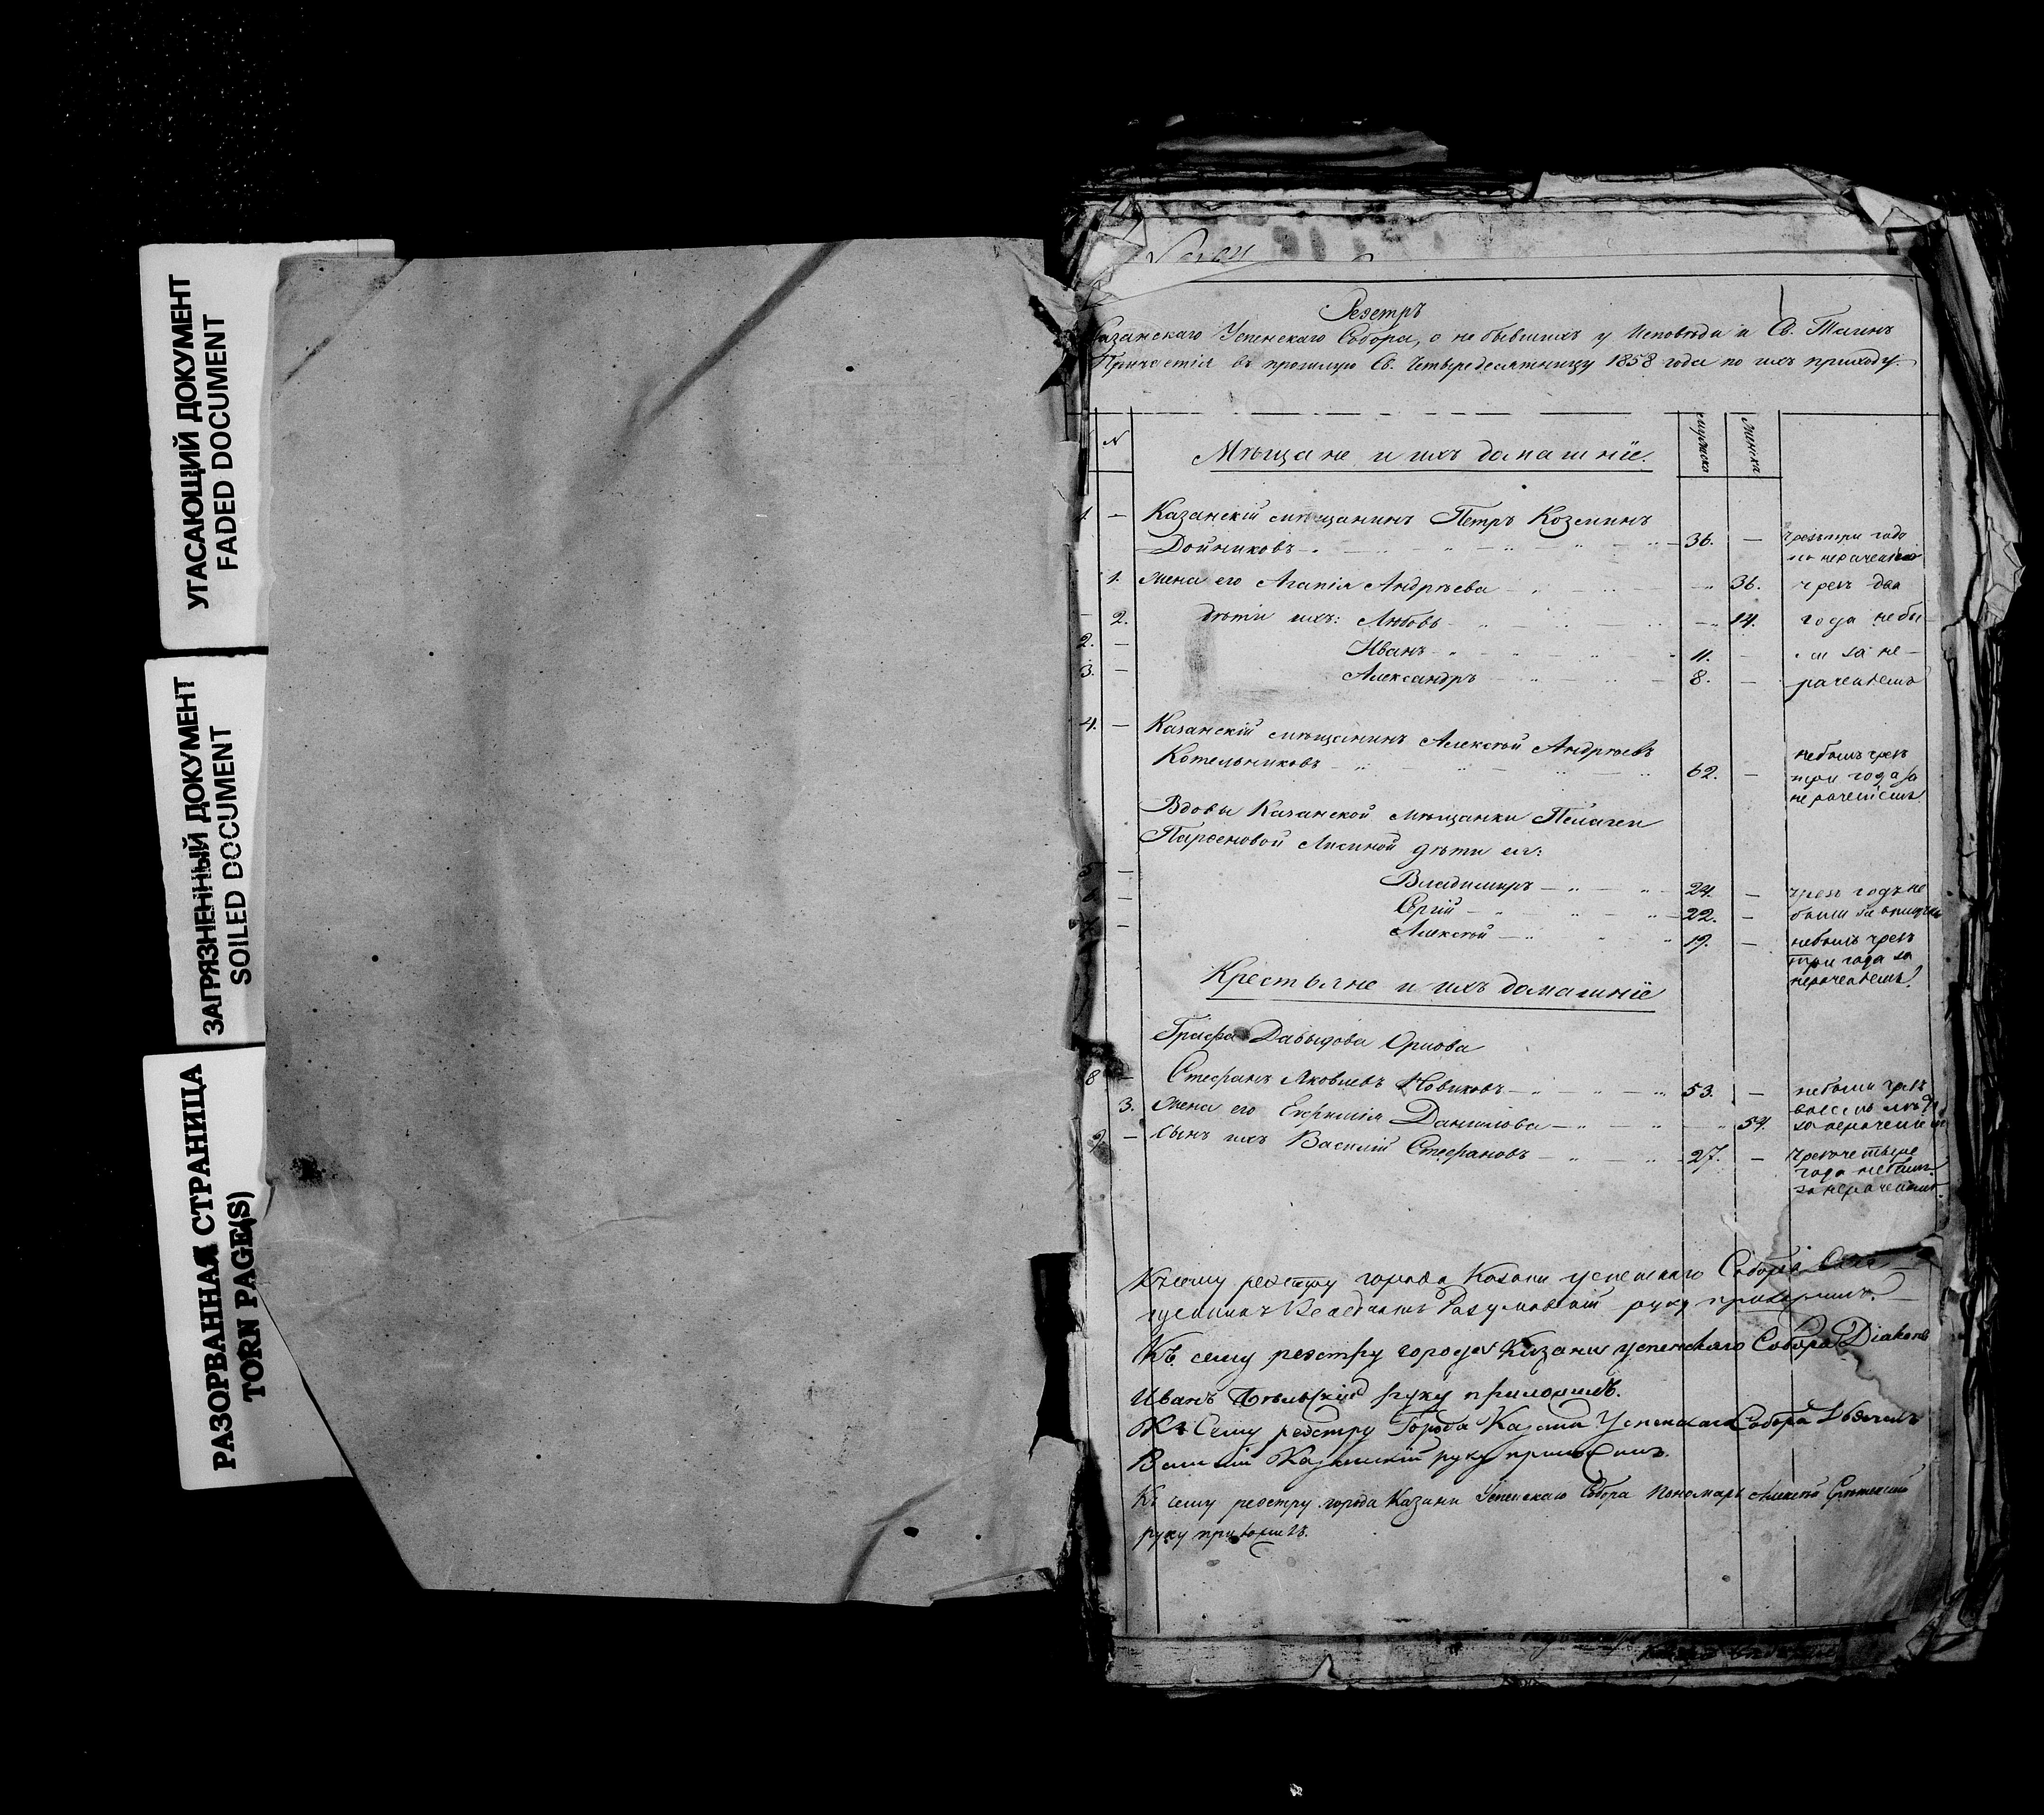 УГАСАЮЩИЙ ДОКУМЕНТ
FADED DOCUMENT
ЗАГРЯЗНЕННЫЙ ДОКУМЕНТ
SOILED DOCUMENT
РАЗОРВАННАЯ СТРАНИЦА
TORN PAGE(S)
Реэстръ
Казанскаго Успенскаго Собора, о небывшихъ у Исповѣди и Св. Таинъ
Причастія въ прошлую Св. Четыредесятницу 1858 года по ихъ приходу.
N
Мѣщане и ихъ домашніе.
мужеска
женска
1. — Казанскій мѣщанинъ Петръ Козминъ
Дойниковъ 36. — чрезъ три года
1. жена его Агапія Андрѣева 36. чрезъ два
2. дѣти ихъ: Любовь 14. года небы
2. — Иванъ 11. — ли за не-
3. — Александръ 8. — раченіемъ
4. — Казанскій мѣщанинъ Алексѣй Андрѣевъ
Котельниковъ 62. — небылъ чрезъ
три года за
нераченіемъ
Вдовы Казанской мѣщанки Пелагеи
Парѳеновой Лисиной дѣти ея:
5 — Владимиръ 24. — чрезъ годъ не
6 — Сергій 22. — были за
7. — Алексѣй 19. — небылъ чрезъ
три года за
нераченіемъ
Крестьяне и ихъ домашніе
Графа Давыдова Орлова
8 — Стефанъ Яковлевъ Новиковъ 53. — небыли чрезъ
3. жена его Евфимія Данилова 54. за нераченіемъ
9 — сынъ ихъ Василій Стефановъ 27. — чрезъ четыре
года небылъ
за нераченіемъ.
Къ сему реэстру города Казани Успенскаго Собора
руку приложилъ.
Къ сему реэстру города Казани Успенскаго Собора Діаконъ
Иванъ руку приложилъ.
Къ Сему реэстру Города Казани Успенскаго Собора Дьячекъ
Василій Казанскій руку приложилъ.
Къ сему реэстру города Казани Успенскаго Собора Пономарь Алексѣй
руку приложилъ.